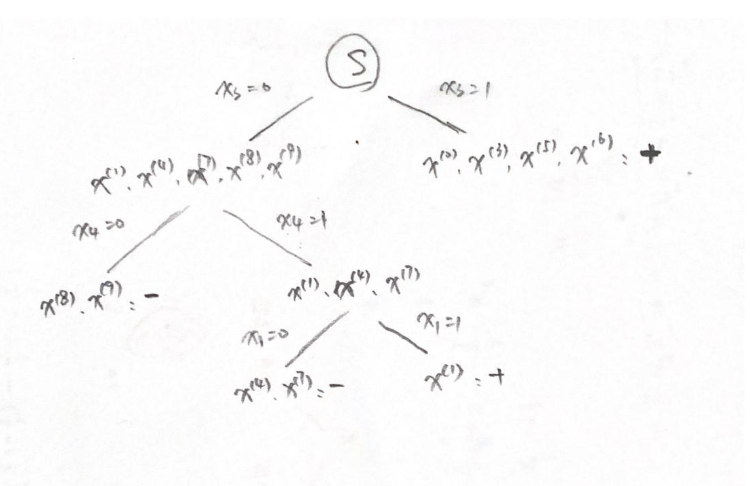 S
x₃=0 x₃=1
x⁽¹⁾, x⁽⁴⁾, x⁽⁷⁾, x⁽⁸⁾, x⁽⁹⁾
x⁽²⁾, x⁽³⁾, x⁽⁵⁾, x⁽⁶⁾: +
x₄=0 x₄=1
x⁽⁸⁾, x⁽⁹⁾: -
x⁽¹⁾, x⁽⁴⁾, x⁽⁷⁾
x₁=0 x₁=1
x⁽⁴⁾, x⁽⁷⁾: -
x⁽¹⁾: +